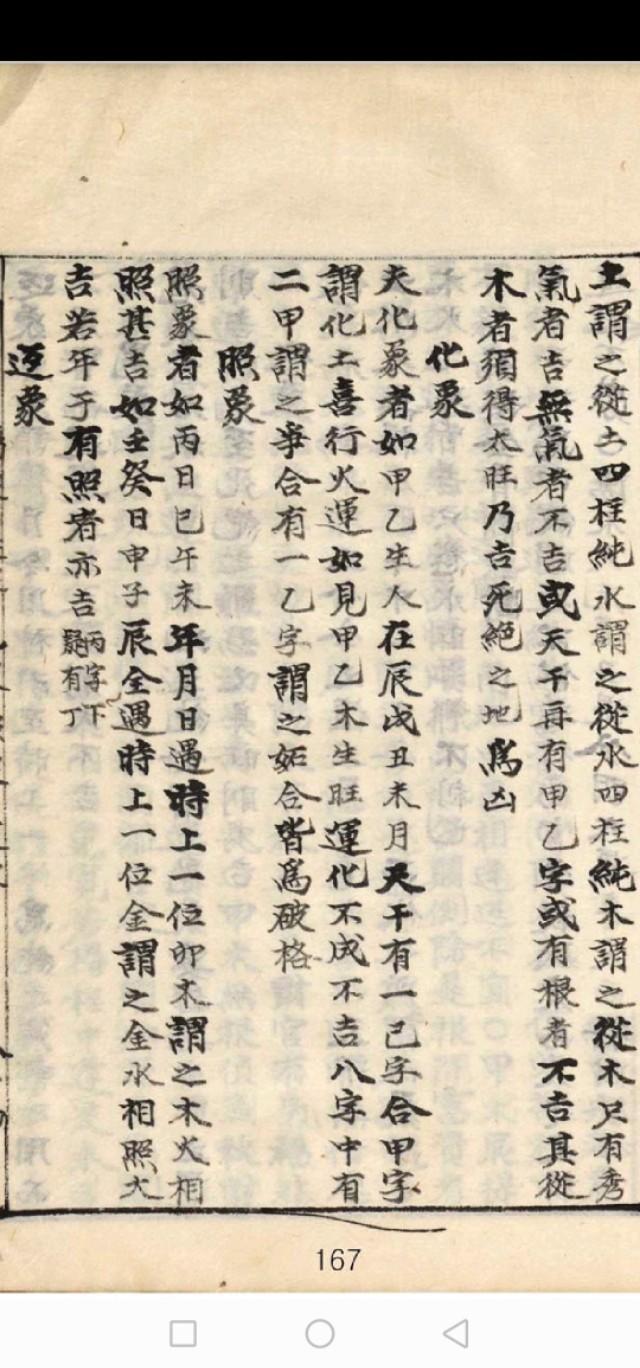 土謂之從土四柱純水謂之從水四柱純木謂之從木只有秀
氣者吉無氣者不吉或天干再有甲乙字或有根者不吉其從
木者須得太旺乃吉死絕之地爲凶
化象
夫化象者如甲乙生人在辰戌丑未月天干有一己字合甲字
謂化土喜行火運如見甲乙木生旺運化不成不吉八字中有
二甲謂之爭合有一乙字謂之妬合皆爲破格
照象
照象者如丙日巳午未年月日遇時上一位卯木謂之木火相
照甚吉如壬癸日申子辰全遇時上一位金謂之金水相照大
吉若年干有照者亦吉丙字下
疑有丁
返象
167